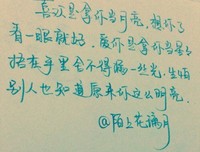 喜欢是拿你当月亮，想你了
看一眼就好，爱你是拿你当星星
捂在手里舍不得漏一丝光，生怕
别人也知道原来你这么明亮
@陌上花满月